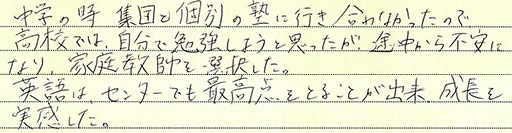 中学の時 集団と個別の塾に行き合わなかったので
高校では、自分で勉強しようと思ったが 途中から不安に
なり、家庭教師を選択した。
英語は、センターでも最高点をとることが出来、成長を
実感した。